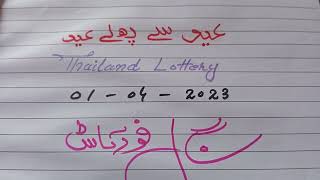 عید سے پہلے عید
Thailand Lottery
01 - 04 - 2023